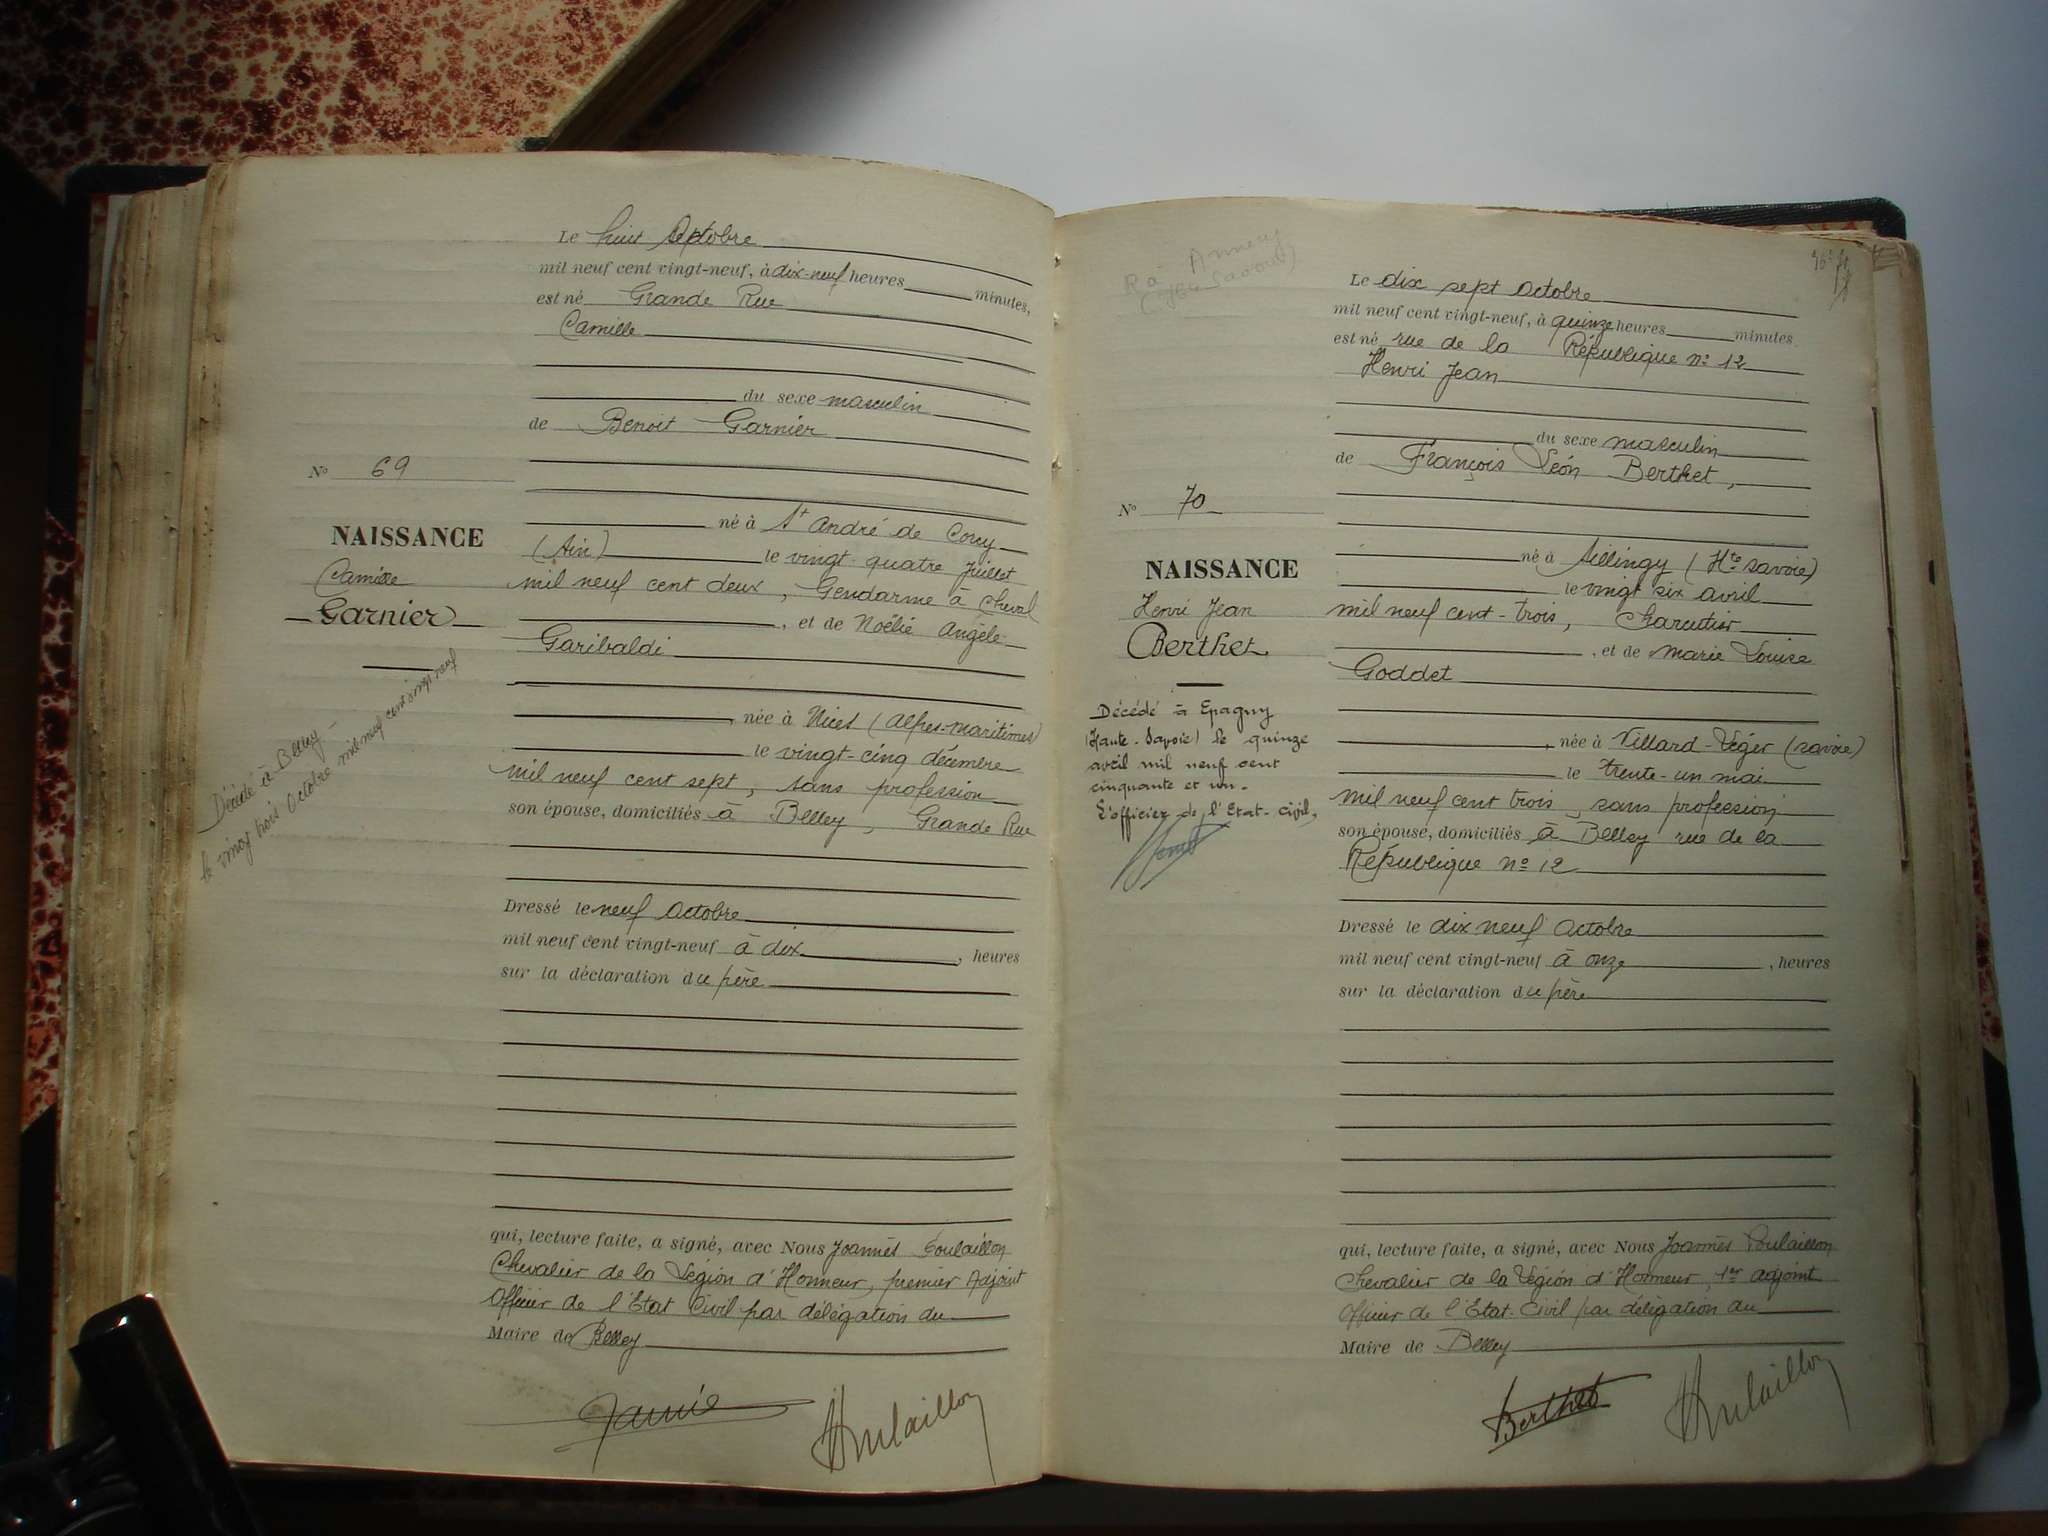 N° 69
NAISSANCE
Camille
Garnier
Décédé à Belley
le vingt trois Octobre mil neuf cent vingt neuf
Le huit Octobre
mil neuf cent vingt-neuf, à dix-neuf heures minutes,
est né Grande Rue
Camille
du sexe masculin
de Benoit Garnier
né à St André de Corcy
(Ain) le vingt-quatre Juillet
mil neuf cent deux, Gendarme à cheval
, et de Noélie Angèle
Garibaldi
, née à Nices (Alpes-Maritimes)
le vingt-cinq décembre
mil neuf cent sept, sans profession
son épouse, domiciliés à Belley, Grande Rue
Dressé le neuf Octobre
mil neuf cent vingt-neuf à dix , heures
sur la déclaration du père
qui, lecture faite, a signé, avec Nous Joannès Poulaillon
Chevalier de la Légion d'Honneur, premier Adjoint
Officier de l'Etat Civil par délégation du
Maire de Belley
R à Annecy
(Hte Savoie)
N° 70
NAISSANCE
Henri Jean
Berthet
Décédé à Epagny
(Haute-Savoie) le quinze
avril mil neuf cent
cinquante et un.
L'officier de l'Etat-Civil,
Le dix sept Octobre
mil neuf cent vingt-neuf, à quinze heures minutes
est né rue de la République n° 12
Henri Jean
du sexe masculin
de François Léon Berthet,
né à Sillingy (Hte Savoie)
le vingt six avril
mil neuf cent-trois, Charcutier
, et de Marie Louise
Goddet
, née à Villard-Léger (Savoie)
le trente-un mai
mil neuf cent trois, sans profession
son épouse, domiciliés à Belley rue de la
République n° 12
Dressé le dix neuf Octobre
mil neuf cent vingt-neuf à onze , heures
sur la déclaration du père
qui, lecture faite, a signé, avec Nous Joannès Poulaillon
Chevalier de la Légion d'Honneur, 1er adjoint
Officier de l'Etat-Civil par délégation du
Maire de Belley
Berthet Poulaillon